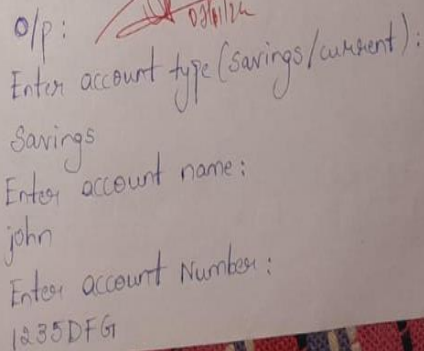 O/p:
Enter account type (savings/current):
Savings
Enter account name:
john
Enter account Number:
1235DFG